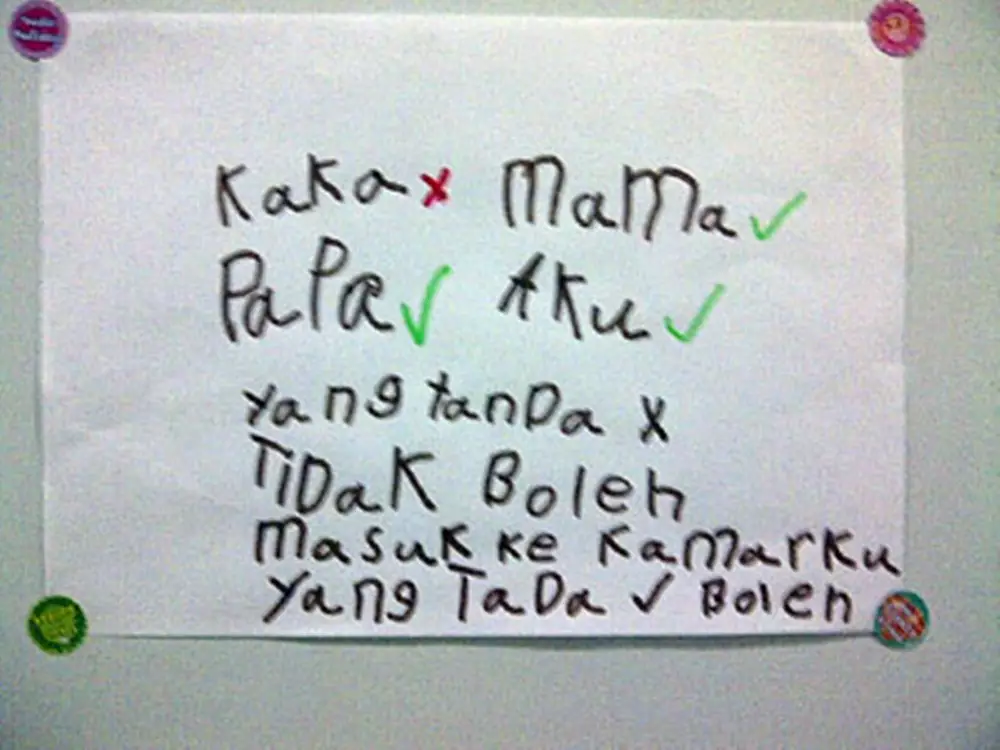 KaKa x MaMa ✓
PaPa ✓ AKu ✓
Yang tanDa x
TiDaK Boleh
MasuK Ke KaMarKu
Yang TaDa ✓ Boleh